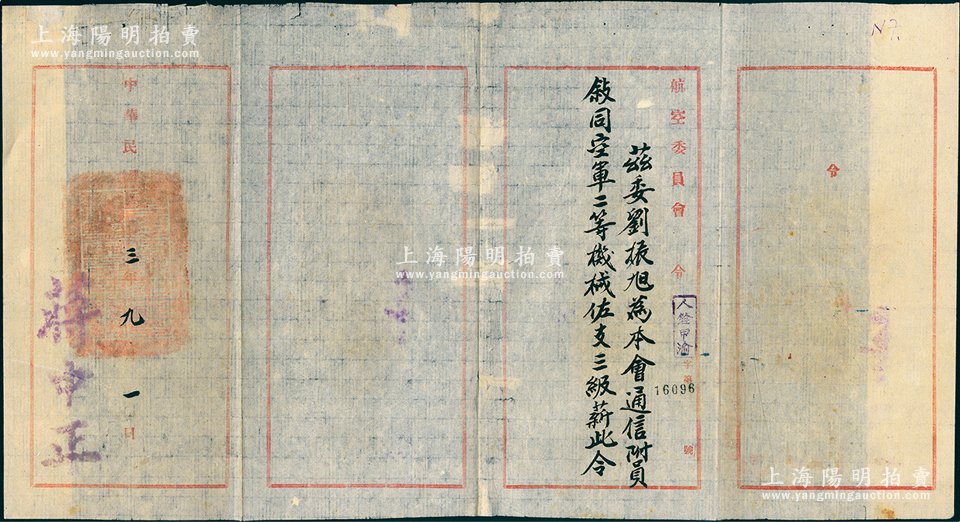 令
航空委員會 令
人銓甲渝 字第 16096 號
茲委劉振旭為本會通信附員
敍同空軍二等機械佐支三級薪此令
中華民
三年九 一日
蔣中正
N7.
上海陽明拍賣
www.yangmingauction.com
上海陽明拍賣
www.yangmingauction.com
上海陽明拍賣
www.yangmingauction.com